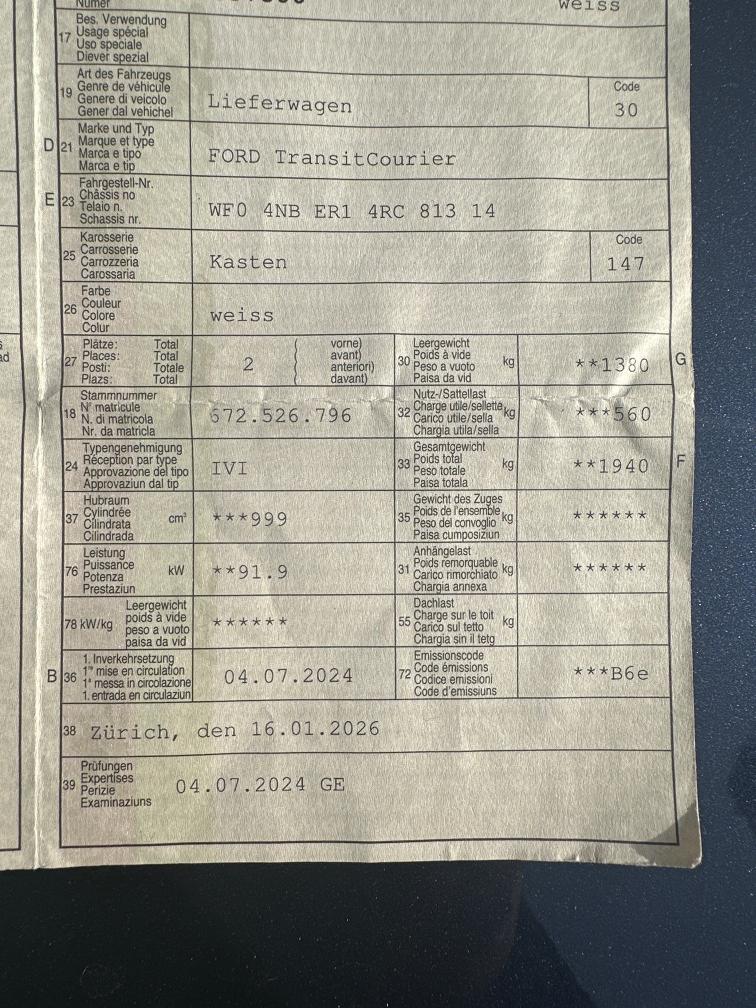 Numer
weiss
17 Bes. Verwendung
Usage spécial
Uso speciale
Diever spezial
19 Art des Fahrzeugs
Genre de véhicule
Genere di veicolo
Gener dal vehichel
Lieferwagen
Code
30
D 21 Marke und Typ
Marque et type
Marca e tipo
Marca e tip
FORD TransitCourier
E 23 Fahrgestell-Nr.
Châssis no
Telaio n.
Schassis nr.
WF0 4NB ER1 4RC 813 14
25 Karosserie
Carrosserie
Carrozzeria
Carossaria
Kasten
Code
147
26 Farbe
Couleur
Colore
Colur
weiss
27 Plätze: Total
Places: Total
Posti: Totale
Plazs: Total
2
vorne)
avant)
anteriori)
davant)
30 Leergewicht
Poids à vide
Peso a vuoto
Paisa da vid
kg
**1380
G
18 Stammnummer
N° matricule
N. di matricola
Nr. da matricla
672.526.796
32 Nutz-/Sattellast
Charge utile/sellette
Carico utile/sella
Chargia utila/sella
kg
***560
24 Typengenehmigung
Réception par type
Approvazione del tipo
Approvaziun dal tip
IVI
33 Gesamtgewicht
Poids total
Peso totale
Paisa totala
kg
**1940
F
37 Hubraum
Cylindrée
Cilindrata
Cilindrada
cm³
***999
35 Gewicht des Zuges
Poids de l'ensemble
Peso del convoglio
Paisa cumposiziun
kg
******
76 Leistung
Puissance
Potenza
Prestaziun
kW
**91.9
31 Anhängelast
Poids remorquable
Carico rimorchiato
Chargia annexa
kg
******
78 kW/kg
Leergewicht
poids à vide
peso a vuoto
paisa da vid
******
55 Dachlast
Charge sur le toit
Carico sul tetto
Chargia sin il tetg
kg
B 36 1. Inverkehrsetzung
1re mise en circulation
1a messa in circolazione
1. entrada en circulaziun
04.07.2024
72 Emissionscode
Code émissions
Codice emissioni
Code d'emissiuns
***B6e
38 Zürich, den 16.01.2026
39 Prüfungen
Expertises
Perizie
Examinaziuns
04.07.2024 GE